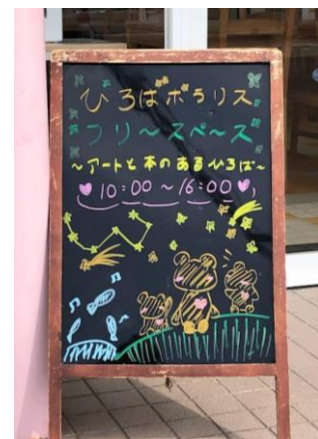 ひろばポラリス
フリースペース
～アートと本のあるひろば～
10:00～16:00